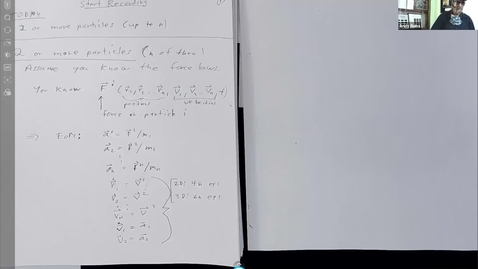 Start Recording
TODAY
2 or more particles (up to n)
2 or more particles (n of them)
Assume you know the force laws.
You know F^i (r1, r2 .. rn, v1, v2 .. vn, t)
positions velocities
force on particle i
⇒ EoM: a^1 = F^1/m1
a2 = F^2/m2
⋮
an = F^n/mn
2D: 4n eq's
3D: 6n eq's